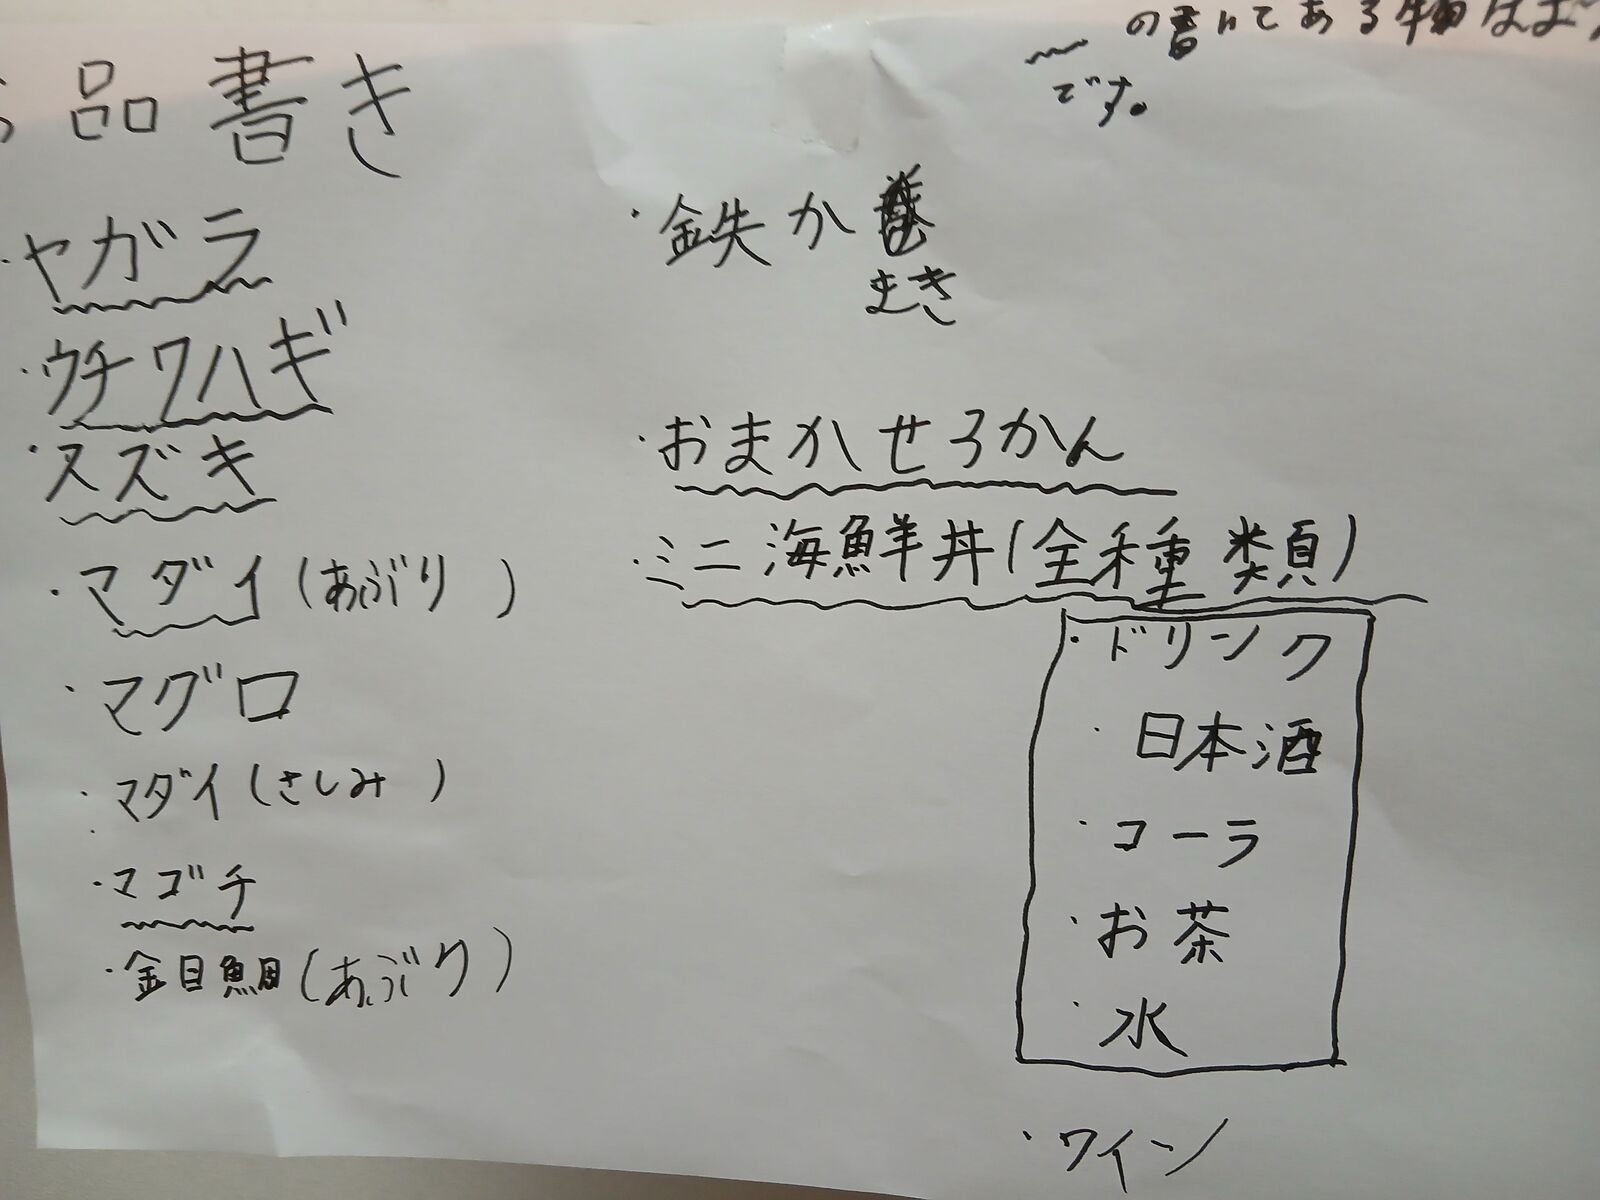 お品書き
の書いてある物はお
です。
・ヤガラ
・ウチワハギ
・スズキ
・マダイ(あぶり)
・マグロ
・マダイ(さしみ)
・マゴチ
・金目鯛(あぶり)
・鉄か
まき
・おまかせろかん
・ミニ海鮮丼(全種類)
・ドリンク
・日本酒
・コーラ
・お茶
・水
・ワイン